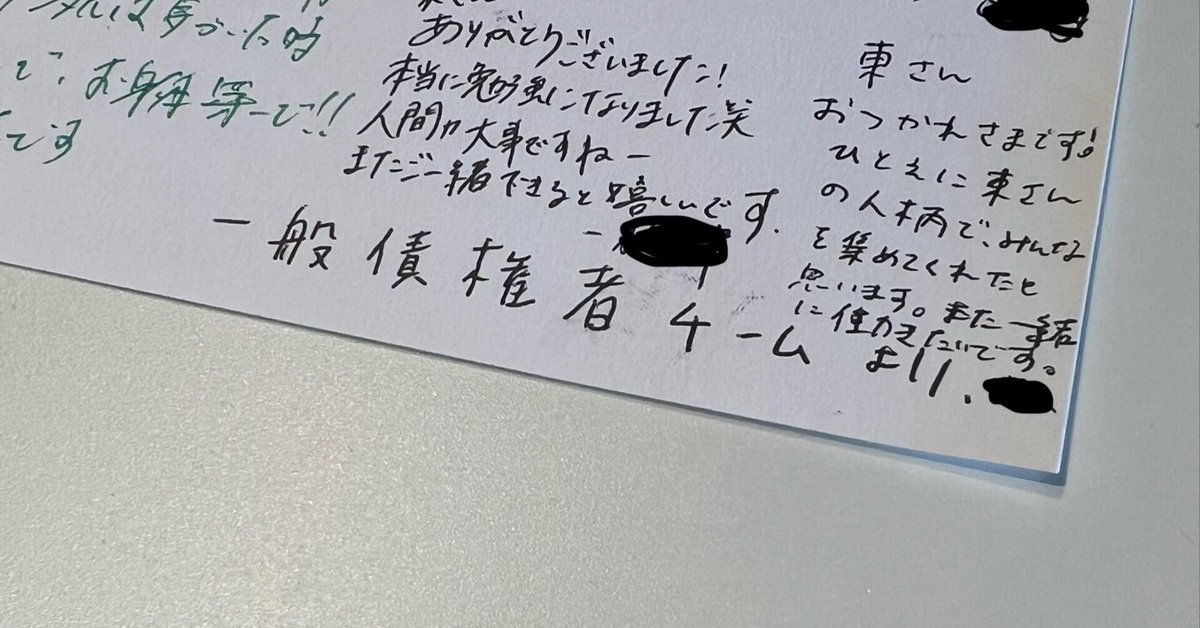 で、お身体第一で!!
です
ありがとうございました!
本当に勉強になりました笑
人間力大事ですねー
またご一緒できると嬉しいです.
東さん
おつかれさまです!
ひとえに東さん
の人柄で、みんな
を集めてくれたと
思います。また一緒
にいです。
一般債権者チームより.